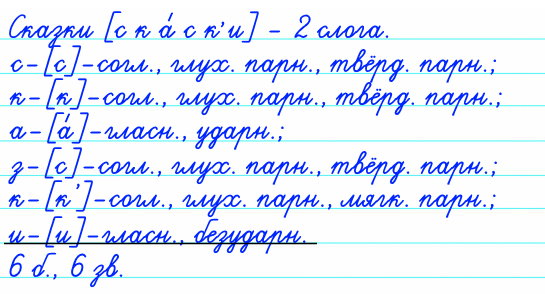 Сказки [с к а́ с к' и] - 2 слога.
с-[с]-согл., глух. парн., твёрд. парн.;
к-[к]-согл., глух. парн., твёрд. парн.;
а-[а́]-гласн., ударн.;
з-[с]-согл., глух. парн., твёрд. парн.;
к-[к']-согл., глух. парн., мягк. парн.;
и-[и]-гласн., безударн.
6 б., 6 зв.